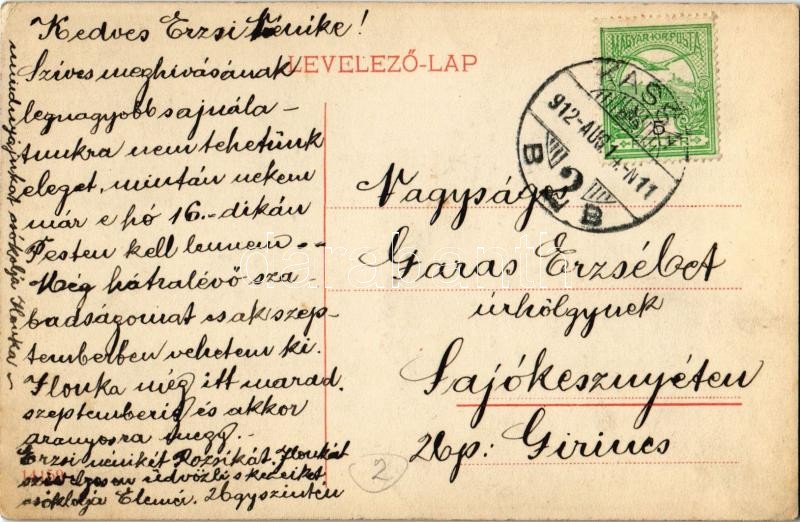 Kedves Erzsi Nénike!
LEVELEZŐ-LAP
Szíves meghívásának
legnagyobb sajnála-
tunkra nem tehetünk
eleget, mintán nekem
már e hó 16.-dikán
Pesten kell lennem --
Még hátralévő sza-
badságomat csak szep-
temberben vehetem ki.
Ilonka még itt marad
szeptemberig és akkor
aranyosra megy.-
Erzsi nénikét Rozsikát. Ilonkát
szívélyesen üdvözli s kezeiket
csókolja Elemér. Úgyszintén
mindnyájukat csókolja Ilonka
MAGYAR KIR. POSTA
KASSA
912-AUG.14.-N11
B 2 B
Nagysága
Garas Erzsébet
úrhölgynek
Sajókesznyéten
Up: Girincs
2
darabanth